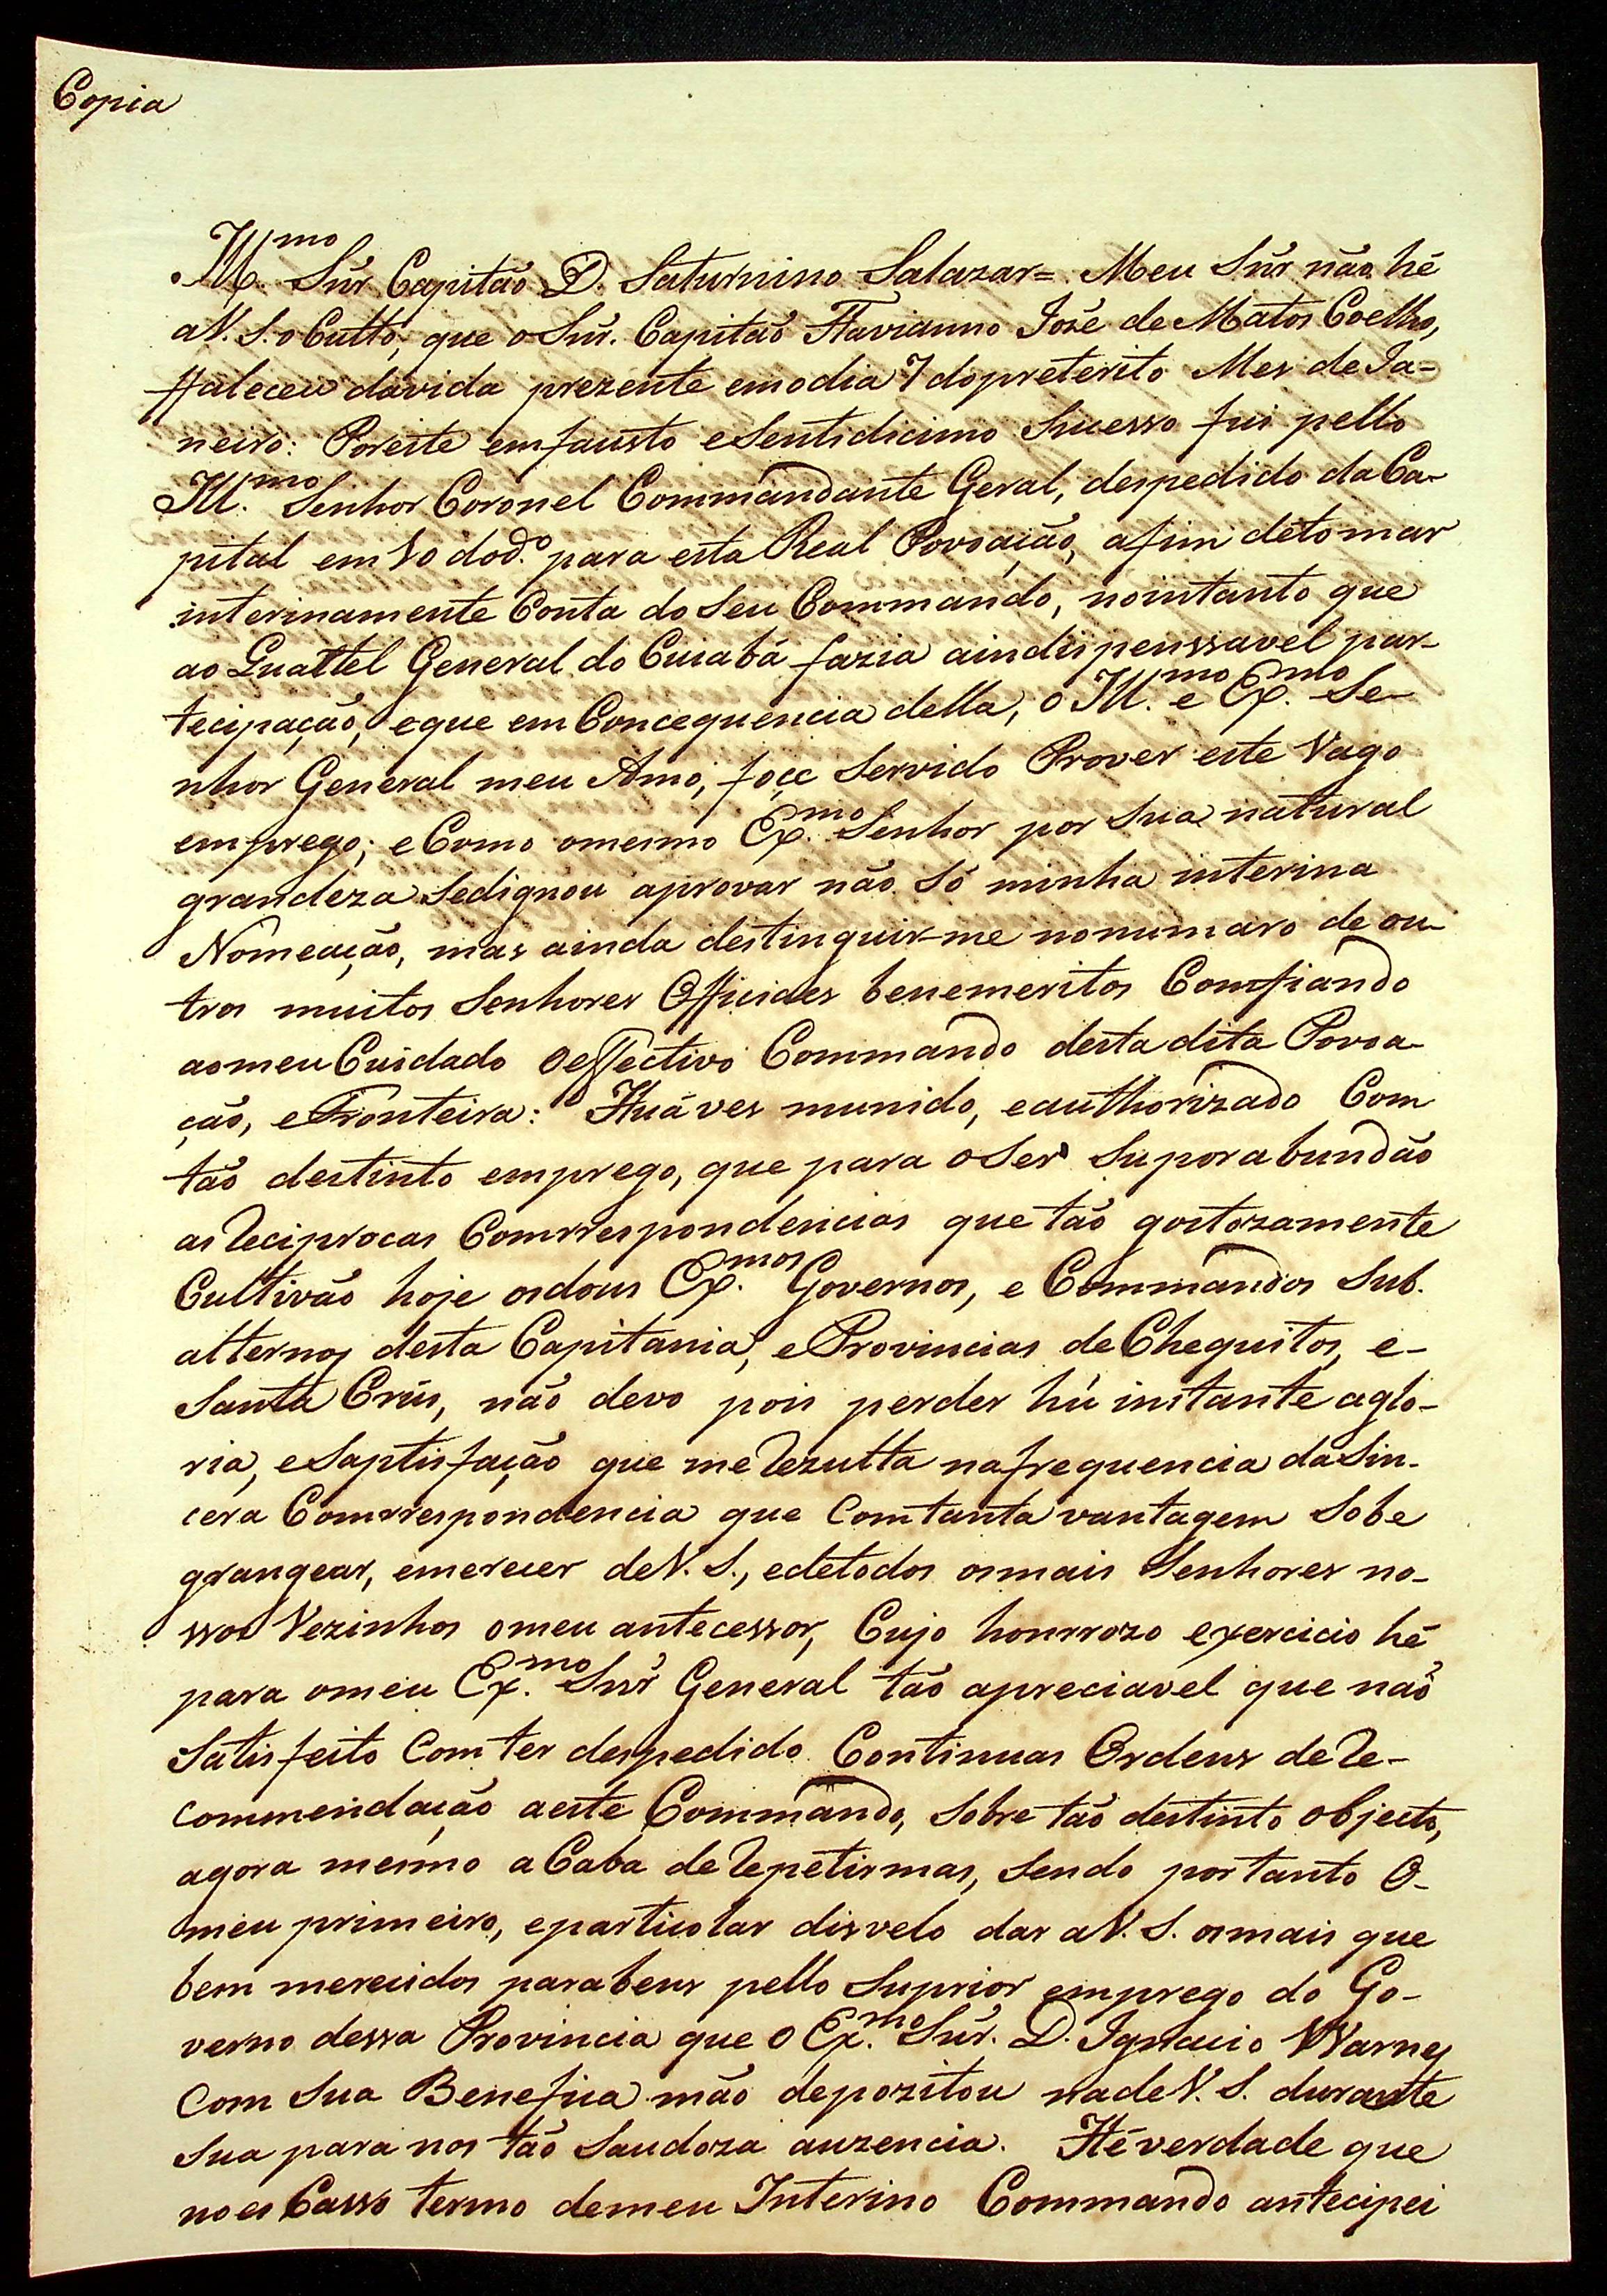 Copia
Ill.mo Snr̃ Capitão D. Saturnino Salazar= Meu Snr̃ não hé
aV. S. oCulto, que o Snr̃. Capitão Flavianno José de Matos Coelho,
ffaleceu davida prezente emodia 7 dopreterito Mes de Ja-
neiro: Poreste emfausto eSentidicimo Sucesso fui pello
Ill.mo Senhor Coronel Commandante Geral, despedido daCa-
pital em 10 dod.o para esta Real Povoação, afim detomar
interinamente Conta do Seu Commando, nointanto que
ao Quattel General do Cuiabá fazia aindispenssavel par-
tecipação, eque em Concequencia della, o Ill.mo e Ex.mo Se-
nhor General meu Amo, foçe Servido Prover este Vago
emprego; eComo omesmo Ex.mo Senhor por Sua natural
grandeza Sedignou aprovar não Só minha interina
Nomeação, mas ainda destinguir-me nonumaro de ou-
tros muitos Senhores Officiaes benemeritos Comfiando
aomeuCuidado oeffectivo Commando desta dita Povoa-
ção, eFronteira: Huá ves munido, eauthorizado Com
tão destinto emprego, que para oSer Suporabundão
as reciprocas Comrrespondencias que tão gostozamente
Cultivão hoje osdous Ex.mos Governos, e Commandos Sub.
alternos desta Capitania, eProvincias deChequitos, e-
Santa Crús, não devo pois perder hú instante aglo-
ria, eSaptisfação que merezulta nafrequencia daSin-
cera Comrrespondencia que Comtanta vantagem Sobe
grangear, emerecer deV. S., edetodos osmais Senhores no-
ssos Vezinhos omeu antecessor, Cujo honrrozo exercicio hé
para omeu Ex.mo Snr̃ General tão apreciavel que não
Satisfeito Comter despedido Continuas Ordens deRe-
commendação aeste Commando, Sobre tão destinto objecto,
agora mesmo aCaba deRepetirmas, Sendo portanto O-
meu primeiro, eparticolar disvelo dar aV. S. osmais que
bem merecidos parabens pello Suprior emprego do Go-
verno dessa Provincia que o Ex.mo Snr̃. D. Ignacio Warnes
Com Sua Benefica mão depozitou nadeV. S. durante
Sua para nos tão Saudoza auzencia. Hé verdade que
no esCasso termo demeu Interino Commando antecipei